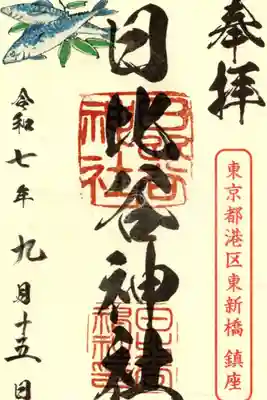 奉拝
東京都港区東新橋 鎮座
日比谷神社
令和七年 九月十五日